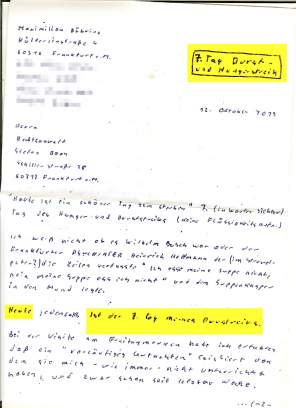 Maximilian Bähring
Hölderlinstraße 4
60316 Frankfurt a.M.
7. Tag Durst-
und Hungerstreik
12. Oktober
Herrn
Rechtsanwalt
Stefan Bonn
60313 Frankfurt a.M.
Heute ist ein schöner Tag zum sterben"
Tag des Hunger- und Durststreiks (keine Flüssigkeit
Ich weiß nicht ob es Wilhelm Busch war oder der
Frankfurter Heinrich Hoffmann der
die Zeilen verfasste "Ich esse meine Suppe nicht,
nein meine Suppe ess ich nicht" und dem Suppenkasper
in den Mund legte.
Heute jedenfalls ist der 7. Tag meines Durststreiks.
Bei der Visite am Freitagmorgen habe ich erfahren
daß ein "vorläufiges Gutachten" existiert von
dem sie mich - wie immer - nicht unterrichtet
haben, und zwar schon seit letzter Woche.
...(-2-